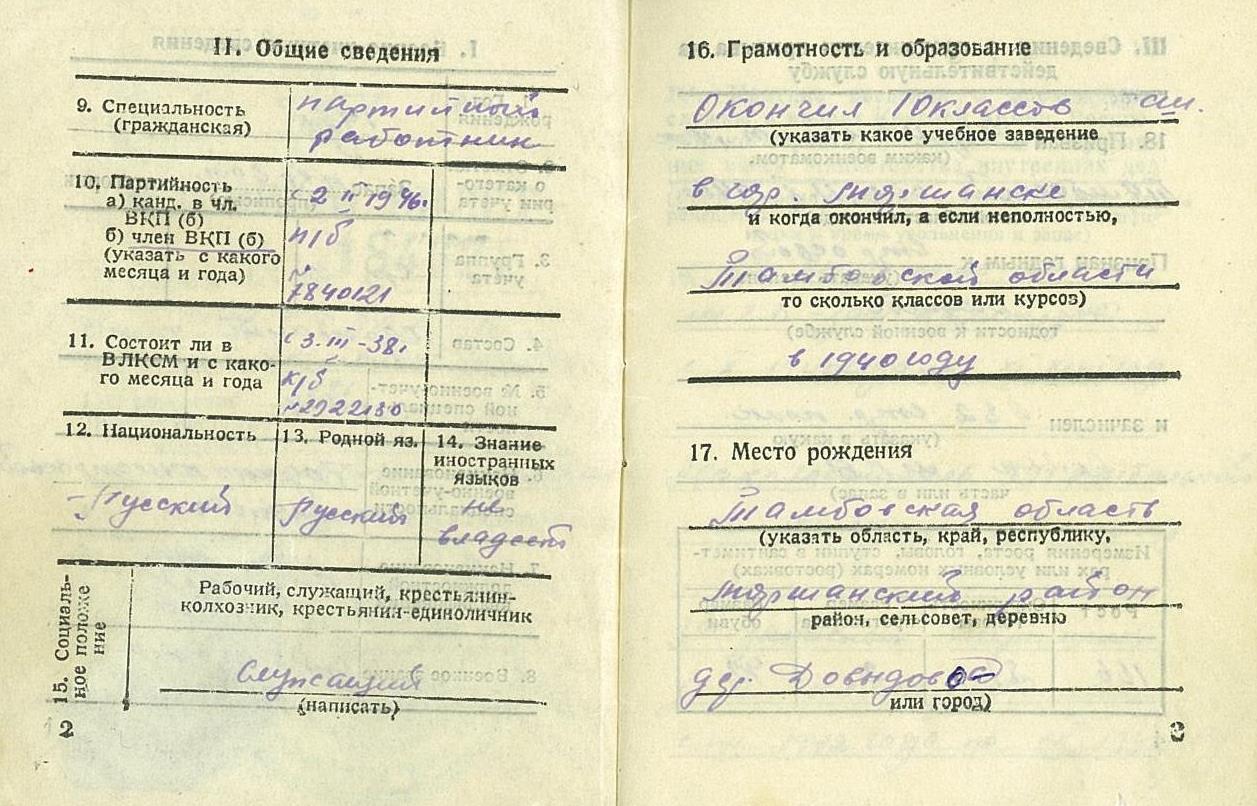 II. Общие сведения
9. Специальность
(гражданская)
партийный
работник
10. Партийность
а) канд. в чл.
ВКП (б)
б) член ВКП (б)
(указать с какого
месяца и года)
с 2 II 1946г.
п/б
№
7840121
11. Состоит ли в
ВЛКСМ и с како-
го месяца и года
с 3.III-38г
к/б
№2922130
12. Национальность
Русский
13. Родной яз.
Русский
14. Знание
иностранных
языков
не
владеет
15. Социаль-
ное положе
ние
Рабочий, служащий, крестьянин-
колхозник, крестьянин-единоличник
Служащий
(написать)
2
16. Грамотность и образование
Окончил 10 классов
(указать какое учебное заведение
в гор. Моршанске
и когда окончил, а если неполностью,
Тамбовской области
то сколько классов или курсов)
в 1940 году
17. Место рождения
Тамбовская область
(указать область, край, республику,
Моршанский район
район, сельсовет, деревню
дер.
или город)
3